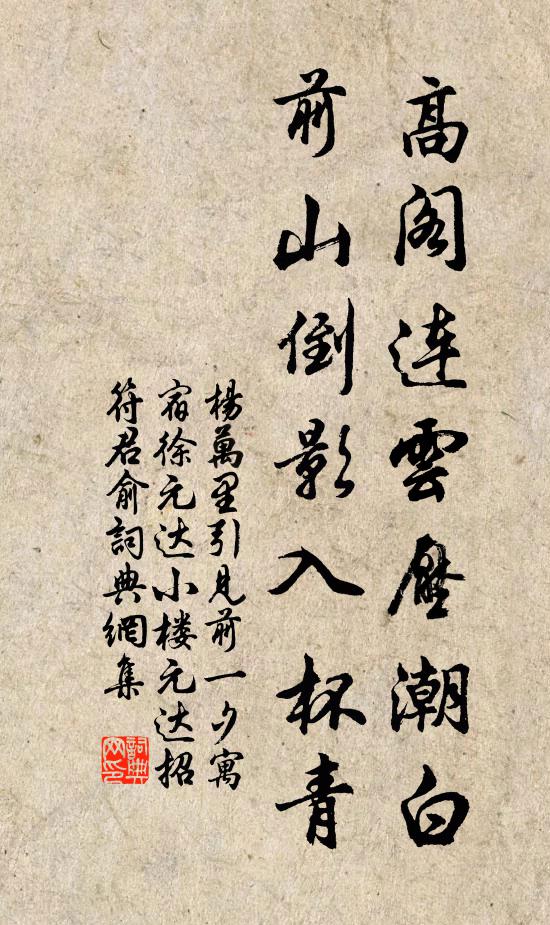 高阁连雲壓潮白
前山倒影入杯青
楊萬里引見前一夕寓
宿徐元达小楼元达招
符君俞詞典網集
詞典网印